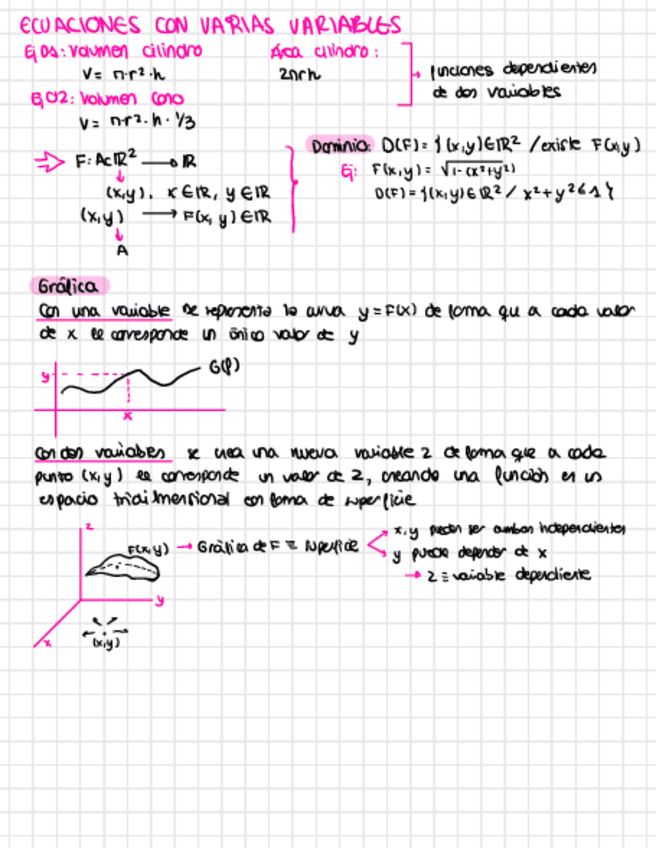 ECUACIONES CON VARIAS VARIABLES
Ej 01: Volumen cilindro
V = π·r²·h
Área cilindro:
2πrh
→ funciones dependientes
de dos variables
Ej 02: Volumen cono
V = π·r²·h·1/3
⇒ F: A⊂ℝ² → ℝ
↓
(x,y), x∈ℝ, y∈ℝ
(x,y) → F(x,y)∈ℝ
↓
A
Dominio: D(F) = {(x,y)∈ℝ² / existe F(x,y)
Ej: F(x,y) = √1-(x²+y²)
D(F) = {(x,y)∈ℝ² / x²+y²≤1}
Gráfica
Con una variable se representa la curva y=F(x) de forma que a cada valor
de x le corresponde un único valor de y
y
G(f)
x
Con dos variables se crea una nueva variable z de forma que a cada
punto (x,y) le corresponde un valor de z, creando una función en un
espacio tridimensional con forma de superficie
z
F(x,y) → Gráfica de F ≡ superficie
x,y pueden ser ambas independientes
y puede depender de x
→ z ≡ variable dependiente
y
x
(x,y)